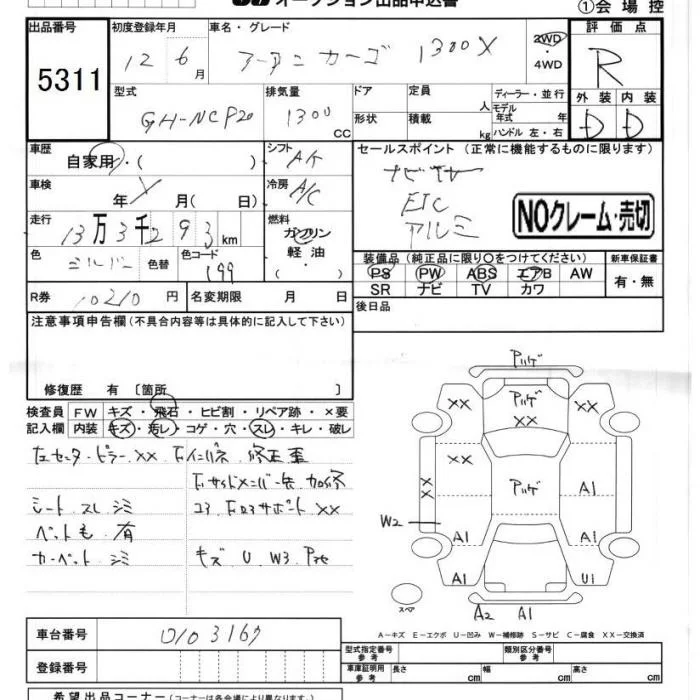 オークション出品申込書
①会場控
出品番号 5311
初度登録年月 12 6月
車名・グレード アーバンカーゴ 1300X
2WD・4WD
評価点 R
外装 D 内装 D
型式 GH-NCP20
排気量 1300 CC
ドア 形状
定員 人
積載 kg
ディーラー・並行
モデル年式 年
ハンドル 左・右
車歴 自家用・( )
シフト AT
車検 年 月(日)
冷房 A/C
走行 13万3千293km
燃料 ガソリン 軽油・( )
色 シルバー 色替 色コード 199
R券 10210円
名変期限 月 日
セールスポイント(正常に機能するものに限ります)
ナビTV
ETC
アルミ
NOクレーム・売切
装備品(純正品に限り○をつけてください) 新車保証書
PS PW ABS エアB AW 有・無
SR ナビ TV カワ
後日品
注意事項申告欄(不具合内容等は具体的に記入して下さい)
修復歴 有〔箇所 〕
検査員記入欄
FW キズ・飛石・ヒビ割・リペア跡・×要
内装 キズ・汚レ・コゲ・穴・スレ・キレ・破レ
左センターピラーXX 修正
シート スレ シミ コア サポートXX
ペット毛 有
カーペット シミ キズ U W3
車台番号 0103167
登録番号
希望出品コーナー(コーナーは各会場により異なります)
XX XX XX XX XX
W2
A1 A1 A1
A1 U1
A2 A1
スペア
A-キズ E-エクボ U-凹み W-補修跡 S-サビ C-腐食 XX-交換済
型式指定番号 参考 類別区分番号 参考
車庫証明用 参考 長さ cm 幅 cm 高さ cm